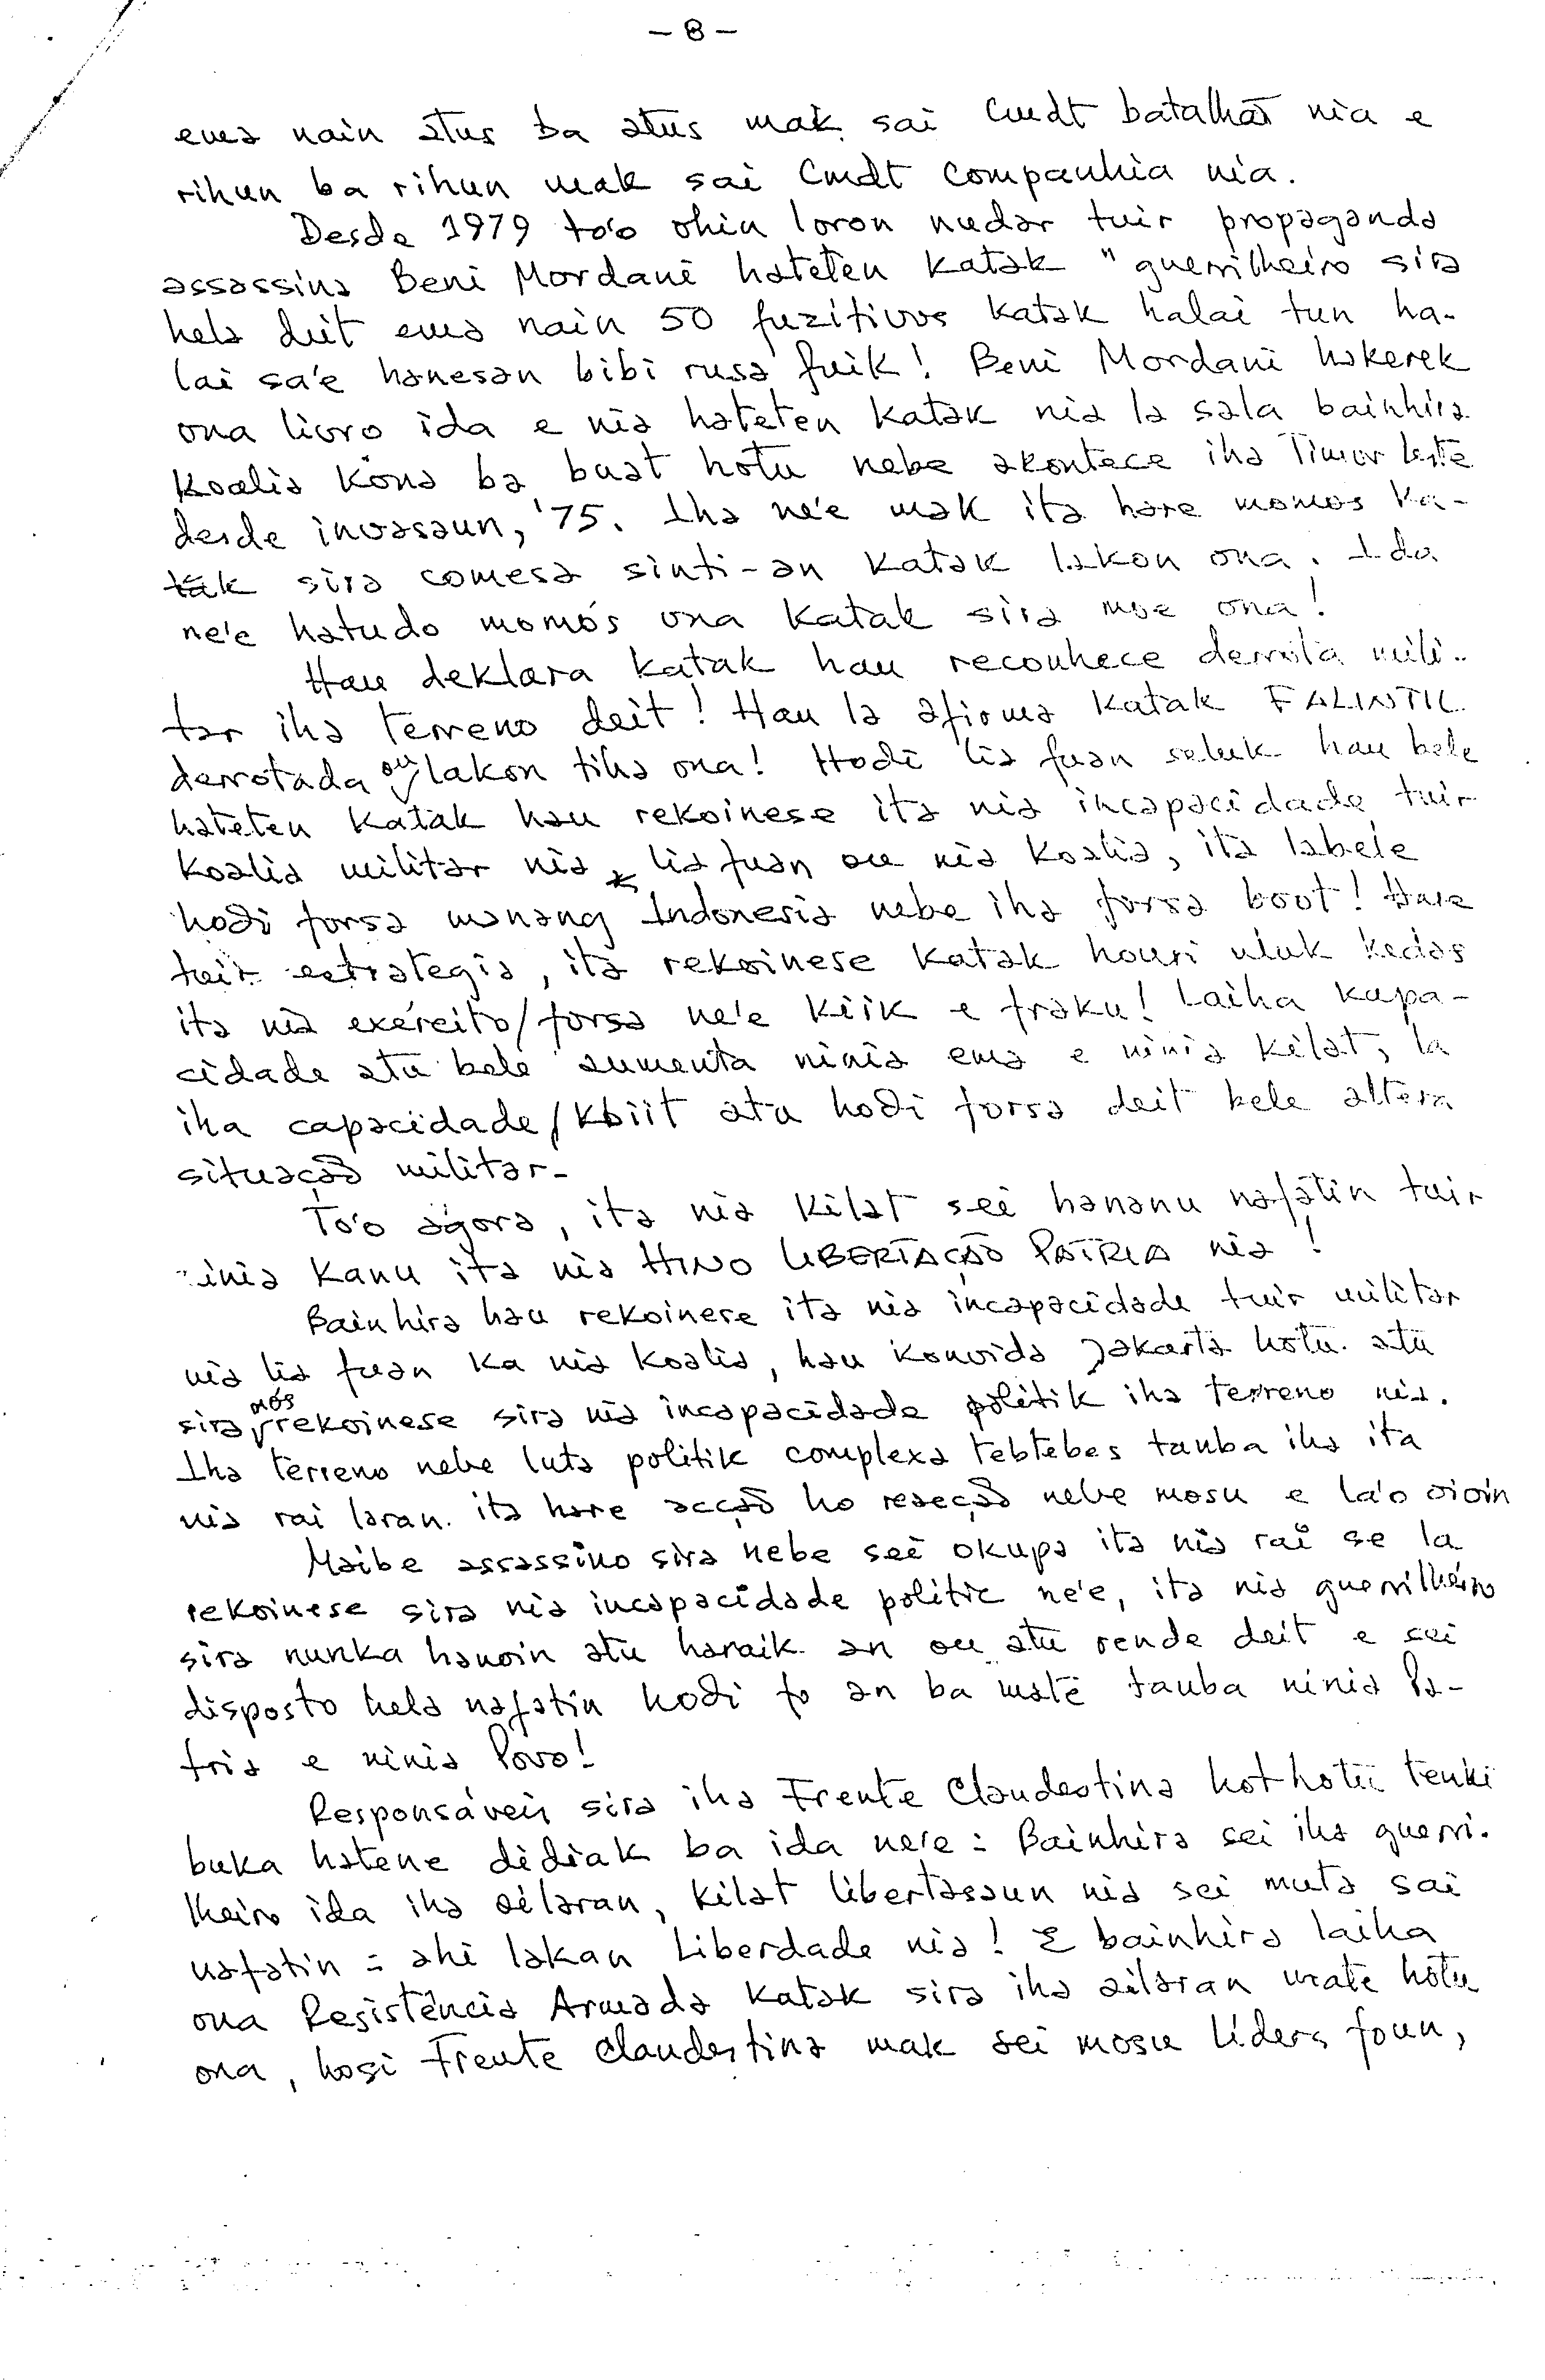 - 8 -
ema nain atus ba atus mak sai Cmdt batalhão nia e
rihun ba rihun mak sai Cmdt Companhia nia.
Desde 1979 to'o ohin loron nudar tuir propaganda
assassino Beni Mordani hateten katak "guerrilheiro sira
hela deit ema nain 50 fuzitivos katak halai tun ha-
lai sa'e hanesan bibi rusa fuik! Beni Mordani hakerek
ona livro ida e nia hateten katak nia la sala bainhira
koalia kona ba buat hotu nebe akontece iha Timor Leste
desde invasaun, '75. Iha ne'e mak ita hare momos ka-
tak sira comesa sinti-an katak lakon ona. Ida
ne'e hatudo momós ona katak sira moe ona!
Hau deklara katak hau reconhece derrota mili-
tar iha terreno deit! Hau la afirma katak FALINTIL
derrotada ou lakon tiha ona! Hodi lia fuan seluk hau bele
hateten katak hau rekoinese ita nia incapacidade tuir
koalia militar nia lia fuan ou nia koalia, ita labele
hodi forsa manang Indonesia nebe iha forsa boot! Hare
tuir estrategia, ita rekoinese katak houri uluk kedas
ita nia exército/forsa ne'e kiik e fraku! Laiha kapa-
cidade atu bele aumenta ninia ema e ninia kilat, la
iha capacidade/kbiit atu hodi forsa deit bele altera
situação militar-
To'o agora, ita nia kilat sei hananu nafatin tuir
ninia kanu ita nia HINO LIBERTAÇÃO PATRIA nia!
Bainhira hau rekoinese ita nia incapacidade tuir militar
nia lia fuan ka nia koalia, hau konvida Jakarta hotu atu
sira mós rekoinese sira nia incapacidade politik iha terreno nia.
Iha terreno nebe luta politik complexa tebtebes tanba iha ita
nia rai laran ita hare acção ho reacção nebe mosu e la'o oioin
Maibe assassino sira nebe sei okupa ita nia rai se la
rekoinese sira nia incapacidade politic ne'e, ita nia guerrilheiro
sira nunka hanoin atu haraik an ou atu rende deit e sei
disposto hela nafatin hodi fo an ba mate tanba ninia Pa-
tria e ninia Povo!
Responsáveis sira iha Frente Clandestina hothotu tenki
buka hatene didiak ba ida ne'e: Bainhira sei iha guerri-
lheiro ida iha ailaran, kilat libertasaun nia sei muta sai
nafatin = ahi lakan Liberdade nia! E bainhira laiha
ona Resistência Armada katak sira iha ailaran mate hotu
ona, hosi Frente Clandestina mak sei mosu líders foun,